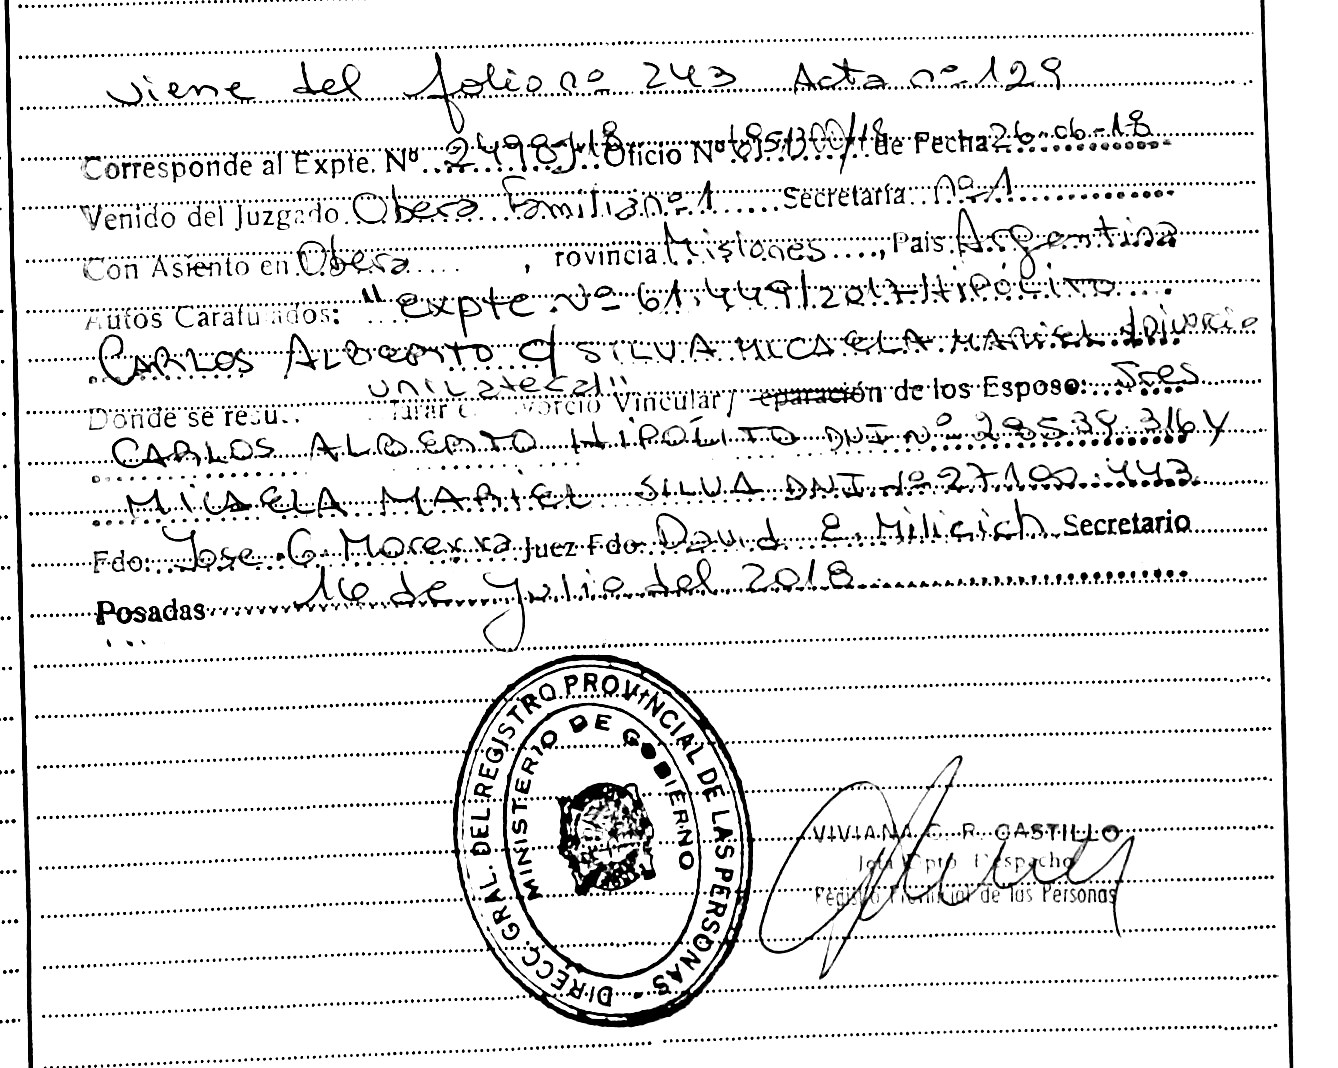 viene del folio nº 243 Acta nº 129
Corresponde al Expte. Nº 2498J-18 Oficio Nº de Fecha 26-06-18
Venido del Juzgado Obera Familia nº 1 Secretaría nº 1
Con Asiento en Obera , rovincia Misiones , País Argentina
Autos Caratulados: "expte Nº 61.449/2017 HIPÓLITO
CARLOS ALBERTO c/ SILVA MICAELA MARIEL s/Divorcio
unilateral"
Donde se resu larar e vorcio Vincular / eparación de los Esposo: Sres
CARLOS ALBERTO HIPÓLITO DNI Nº 28539.316 Y
MICAELA MARIEL SILVA DNI Nº 27.100.443
Fdo: Jose G. Moreyra Juez Fdo. David E. Milicich Secretario
Posadas 16 de Julio del 2018
DIRECC. GRAL. DEL REGISTRO PROVINCIAL DE LAS PERSONAS -
MINISTERIO DE GOBIERNO
VIVIANA G. R. CASTILLO
Jefa Dpto. Despacho
Registro Provincial de las Personas